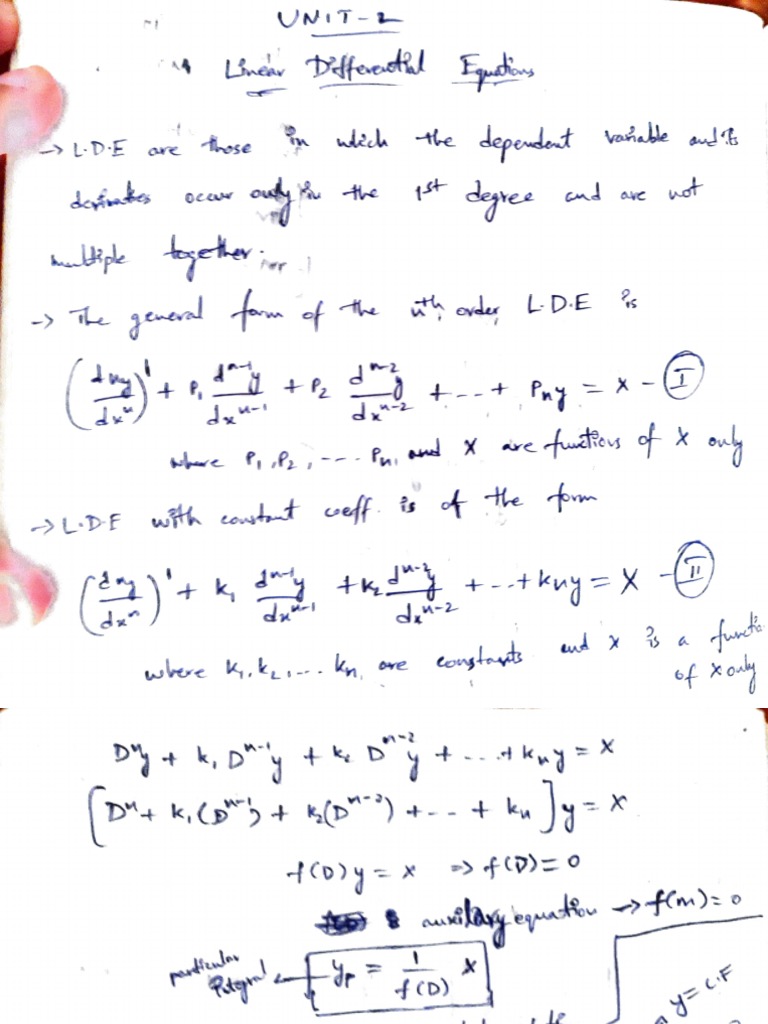 UNIT-2
Linear Differential Equations
→ L.D.E are those in which the dependent variable and its
derivates occur only in the 1st degree and are not
multiple together.
→ The general form of the nth order L.D.E is
(dⁿy/dxⁿ)¹ + P₁ dⁿ⁻¹y/dxⁿ⁻¹ + P₂ dⁿ⁻²y/dxⁿ⁻² + ... + Pₙy = X - Ⓘ
where P₁, P₂, ---- Pₙ, and X are functions of X only
→ L.D.E with constant coeff. is of the form
(dⁿy/dxⁿ)¹ + k₁ dⁿ⁻¹y/dxⁿ⁻¹ + k₂ dⁿ⁻²y/dxⁿ⁻² + ... + kₙy = X - (II)
where k₁, k₂, ... kₙ are constants and X is a functio
of X only
Dⁿy + k₁ Dⁿ⁻¹y + k₂ Dⁿ⁻²y + ... + kₙy = X
[Dⁿ + k₁(Dⁿ⁻¹) + k₂(Dⁿ⁻²) + ... + kₙ]y = X
f(D)y = X ⇒ f(D) = 0
auxilary equation → f(m) = 0
particular Integral ← yₚ = 1/f(D) X
y = C.F